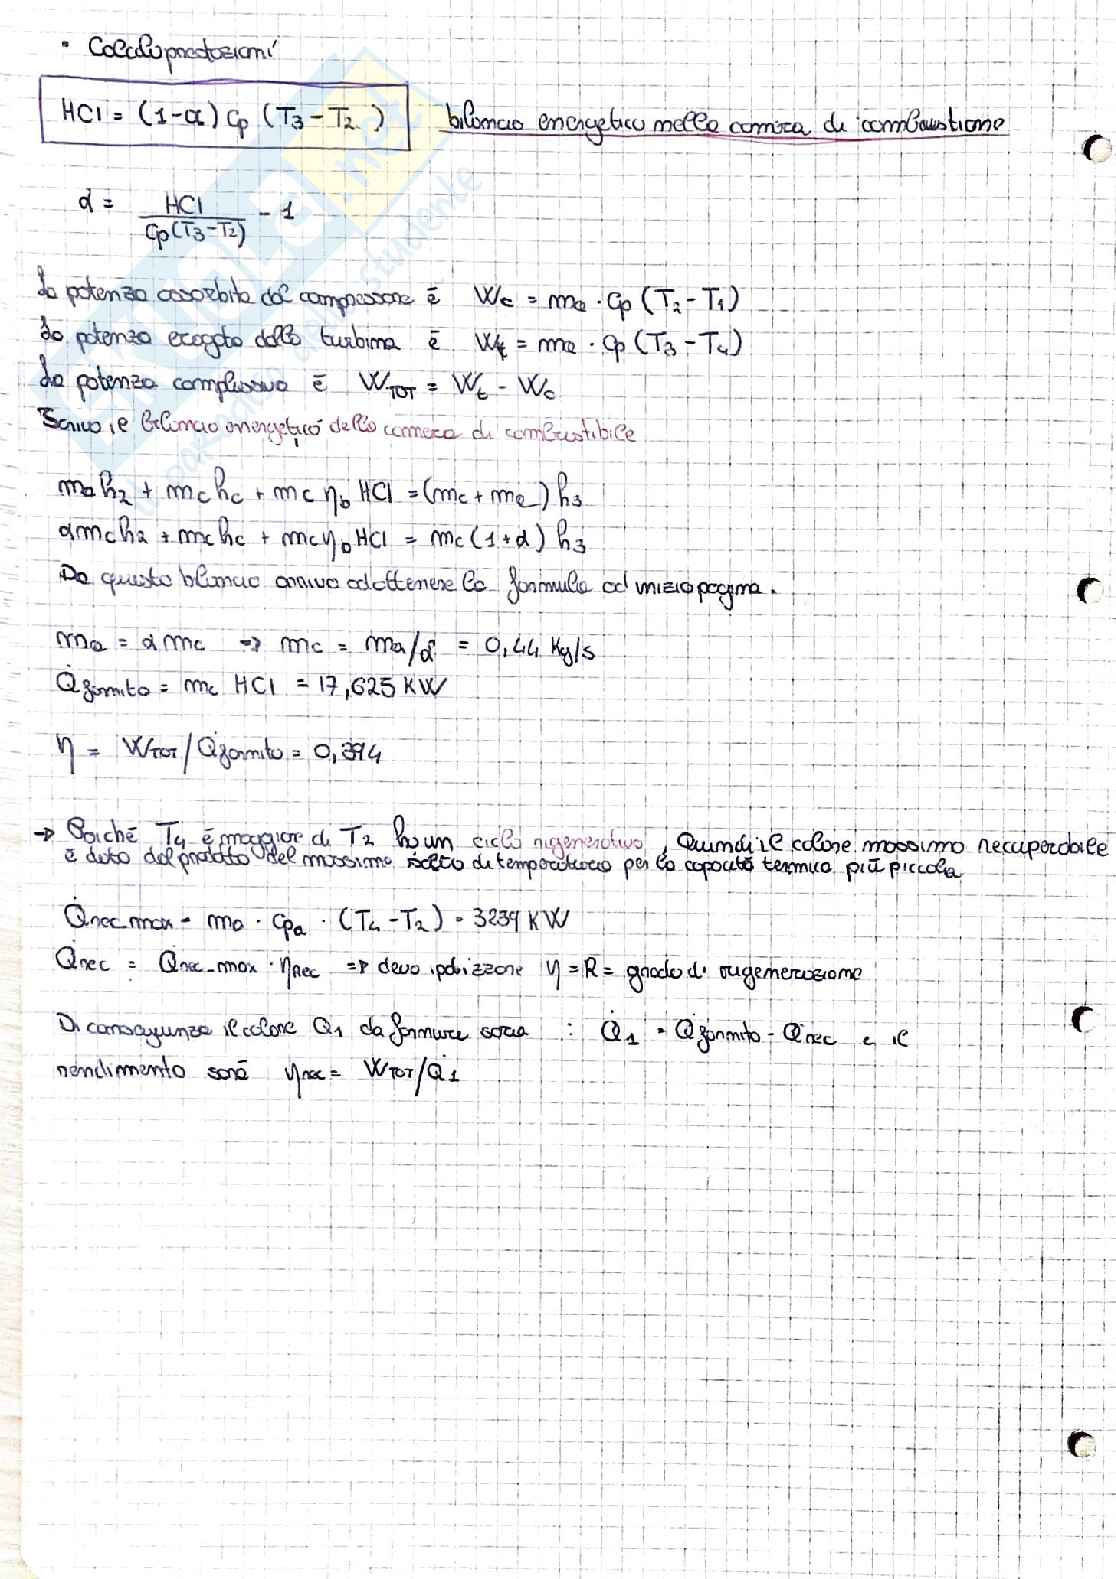 • Calcolo prestazioni
HCI = (1-α) Cp (T3 - T2) bilancio energetico nella camera di combustione
α = HCI / Cp(T3-T2) - 1
La potenza assorbita dal compressore é Wc = ma · Cp (T2 - T1)
La potenza erogata dalla turbina é Wt = ma · Cp (T3 - T4)
La potenza complessiva é WTOT = Wt - Wc
Scrivo il bilancio energetico della camera di combustibile
ma h2 + mc hc + mc ηb HCI = (mc + ma) h3
α mc h2 + mc hc + mc ηb HCI = mc (1+α) h3
Da questo bilancio arrivo ad ottenere la formula ad inizio pagina.
ma = α mc => mc = ma/α = 0,44 Kg/s
Q̇fornito = mc HCI = 17,625 KW
η = WTOT/Q̇fornito = 0,394
→ Poiché T4 é maggior di T2 ho un ciclo rigenerativo, Quindi il calore massimo recuperabile
é dato dal prodotto del massimo salto di temperatura per la capacitá termica piú piccola
Q̇rec_max = ma · cpa · (T4 - T2) = 3239 KW
Q̇rec = Q̇rec_max · ηrec => devo ipotizzare η = R = grado di rigenerazione
Di conseguenza il calore Q1 da fornire sará : Q̇1 = Q̇fornito - Q̇rec e il
rendimento sará ηrec = WTOT/Q̇1